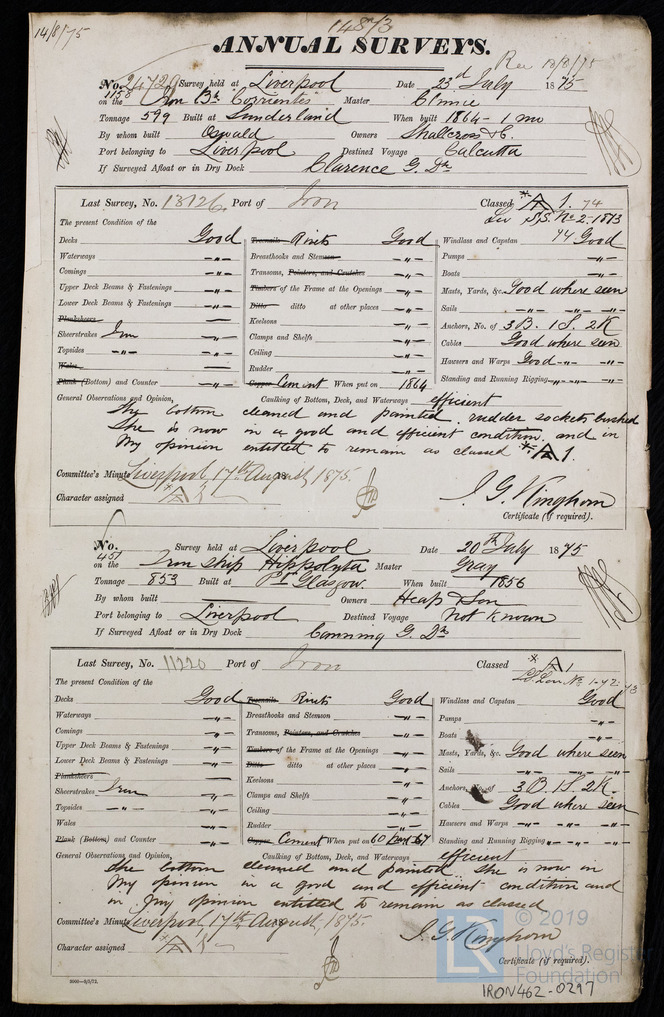 14/8/75
148/3
ANNUAL SURVEYS.
Rec 18/8/75
No. 24720 Survey held at Liverpool Date 23rd July 1875
1158 on the Iron Bk Corrientes Master Clinnie
Tonnage 599 Built at Sunderland When built 1864 - 1 mo
By whom built Oswald Owners Shallcross & C.
Port belonging to Liverpool Destined Voyage Calcutta
If Surveyed Afloat or in Dry Dock Clarence G. Dk
Last Survey, No. 13126 Port of Iron Classed A 1. 74
Liv S.S. No 2-1873
The present Condition of the 74
Decks Good Treenails Rivets Good Windlass and Capstan Good
Waterways -"- Breasthooks and Stemson -"- Pumps -"-
Comings -"- Transoms, Pointers, and Crutches -"- Boats -"-
Upper Deck Beams & Fastenings -"- Timbers of the Frame at the Openings -"- Masts, Yards, &c. Good where seen
Lower Deck Beams & Fastenings -"- Ditto ditto at other places -"- Sails -"- -"- -"-
Planksheers Keelsons -"- Anchors, No. of 3 B. 1 S. 2 K
Sheerstrakes Iron -"- Clamps and Shelfs -"- Cables Good where seen
Topsides -"- -"- Ceiling -"- Hawsers and Warps Good -"- -"-
Wales Rudder -"- Standing and Running Rigging -"- -"- -"-
Plank (Bottom) and Counter -"- Copper Cement When put on 1864
General Observations and Opinion, Caulking of Bottom, Deck, and Waterways efficient
The bottom cleaned and painted. rudder sockets bushed
She is now in a good and efficient condition. and in
my opinion entitled to remain as classed A 1.
Committee's Minute Liverpool, 17th August, 1875.
Character assigned A
J. G. Kinghorn
Certificate (if required).
No. Survey held at Liverpool Date 20th July 1875
451 on the Iron ship Hippolyta Master Gray
Tonnage 853 Built at Pt Glasgow When built 1856
By whom built Owners Heap & Son
Port belonging to Liverpool Destined Voyage Not known
If Surveyed Afloat or in Dry Dock Canning G. Dk
Last Survey, No. 11220 Port of Iron Classed A 1
The present Condition of the
Decks Good Treenails Rivets Good Windlass and Capstan Good
Waterways -"- Breasthooks and Stemson -"- Pumps -"-
Comings -"- Transoms, Pointers, and Crutches -"- Boats -"-
Upper Deck Beams & Fastenings -"- Timbers of the Frame at the Openings -"- Masts, Yards, &c. Good where seen
Lower Deck Beams & Fastenings -"- Ditto ditto at other places -"- Sails -"- -"- -"-
Planksheers Keelsons -"- Anchors, No. of 3 B. 1 S. 2 K.
Sheerstrakes Iron -"- Clamps and Shelfs -"- Cables Good where seen
Topsides -"- -"- Ceiling -"- Hawsers and Warps -"- -"- -"-
Wales -"- Rudder -"- Standing and Running Rigging -"- -"- -"-
Plank (Bottom) and Counter -"- Copper Cement When put on 60 Part 67
General Observations and Opinion, Caulking of Bottom, Deck, and Waterways efficient
The bottom cleaned and painted She is now in
my opinion in a good and efficient condition and
in my opinion entitled to remain as classed
Committee's Minute Liverpool, 17th August, 1875.
Character assigned A
J. G. Kinghorn
Certificate (if required).
LR © 2019
Lloyd's Register
Foundation
IRON462-0297